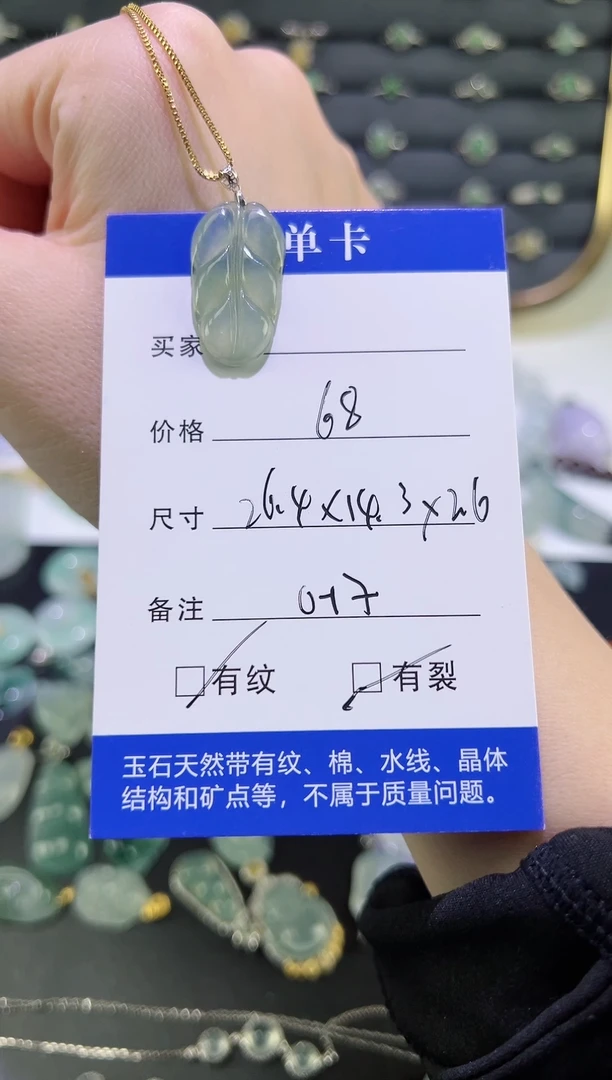 单卡
买家
价格 68
尺寸 26.4×14.3×2.6
备注 017
□有纹 □有裂
玉石天然带有纹、棉、水线、晶体
结构和矿点等，不属于质量问题。